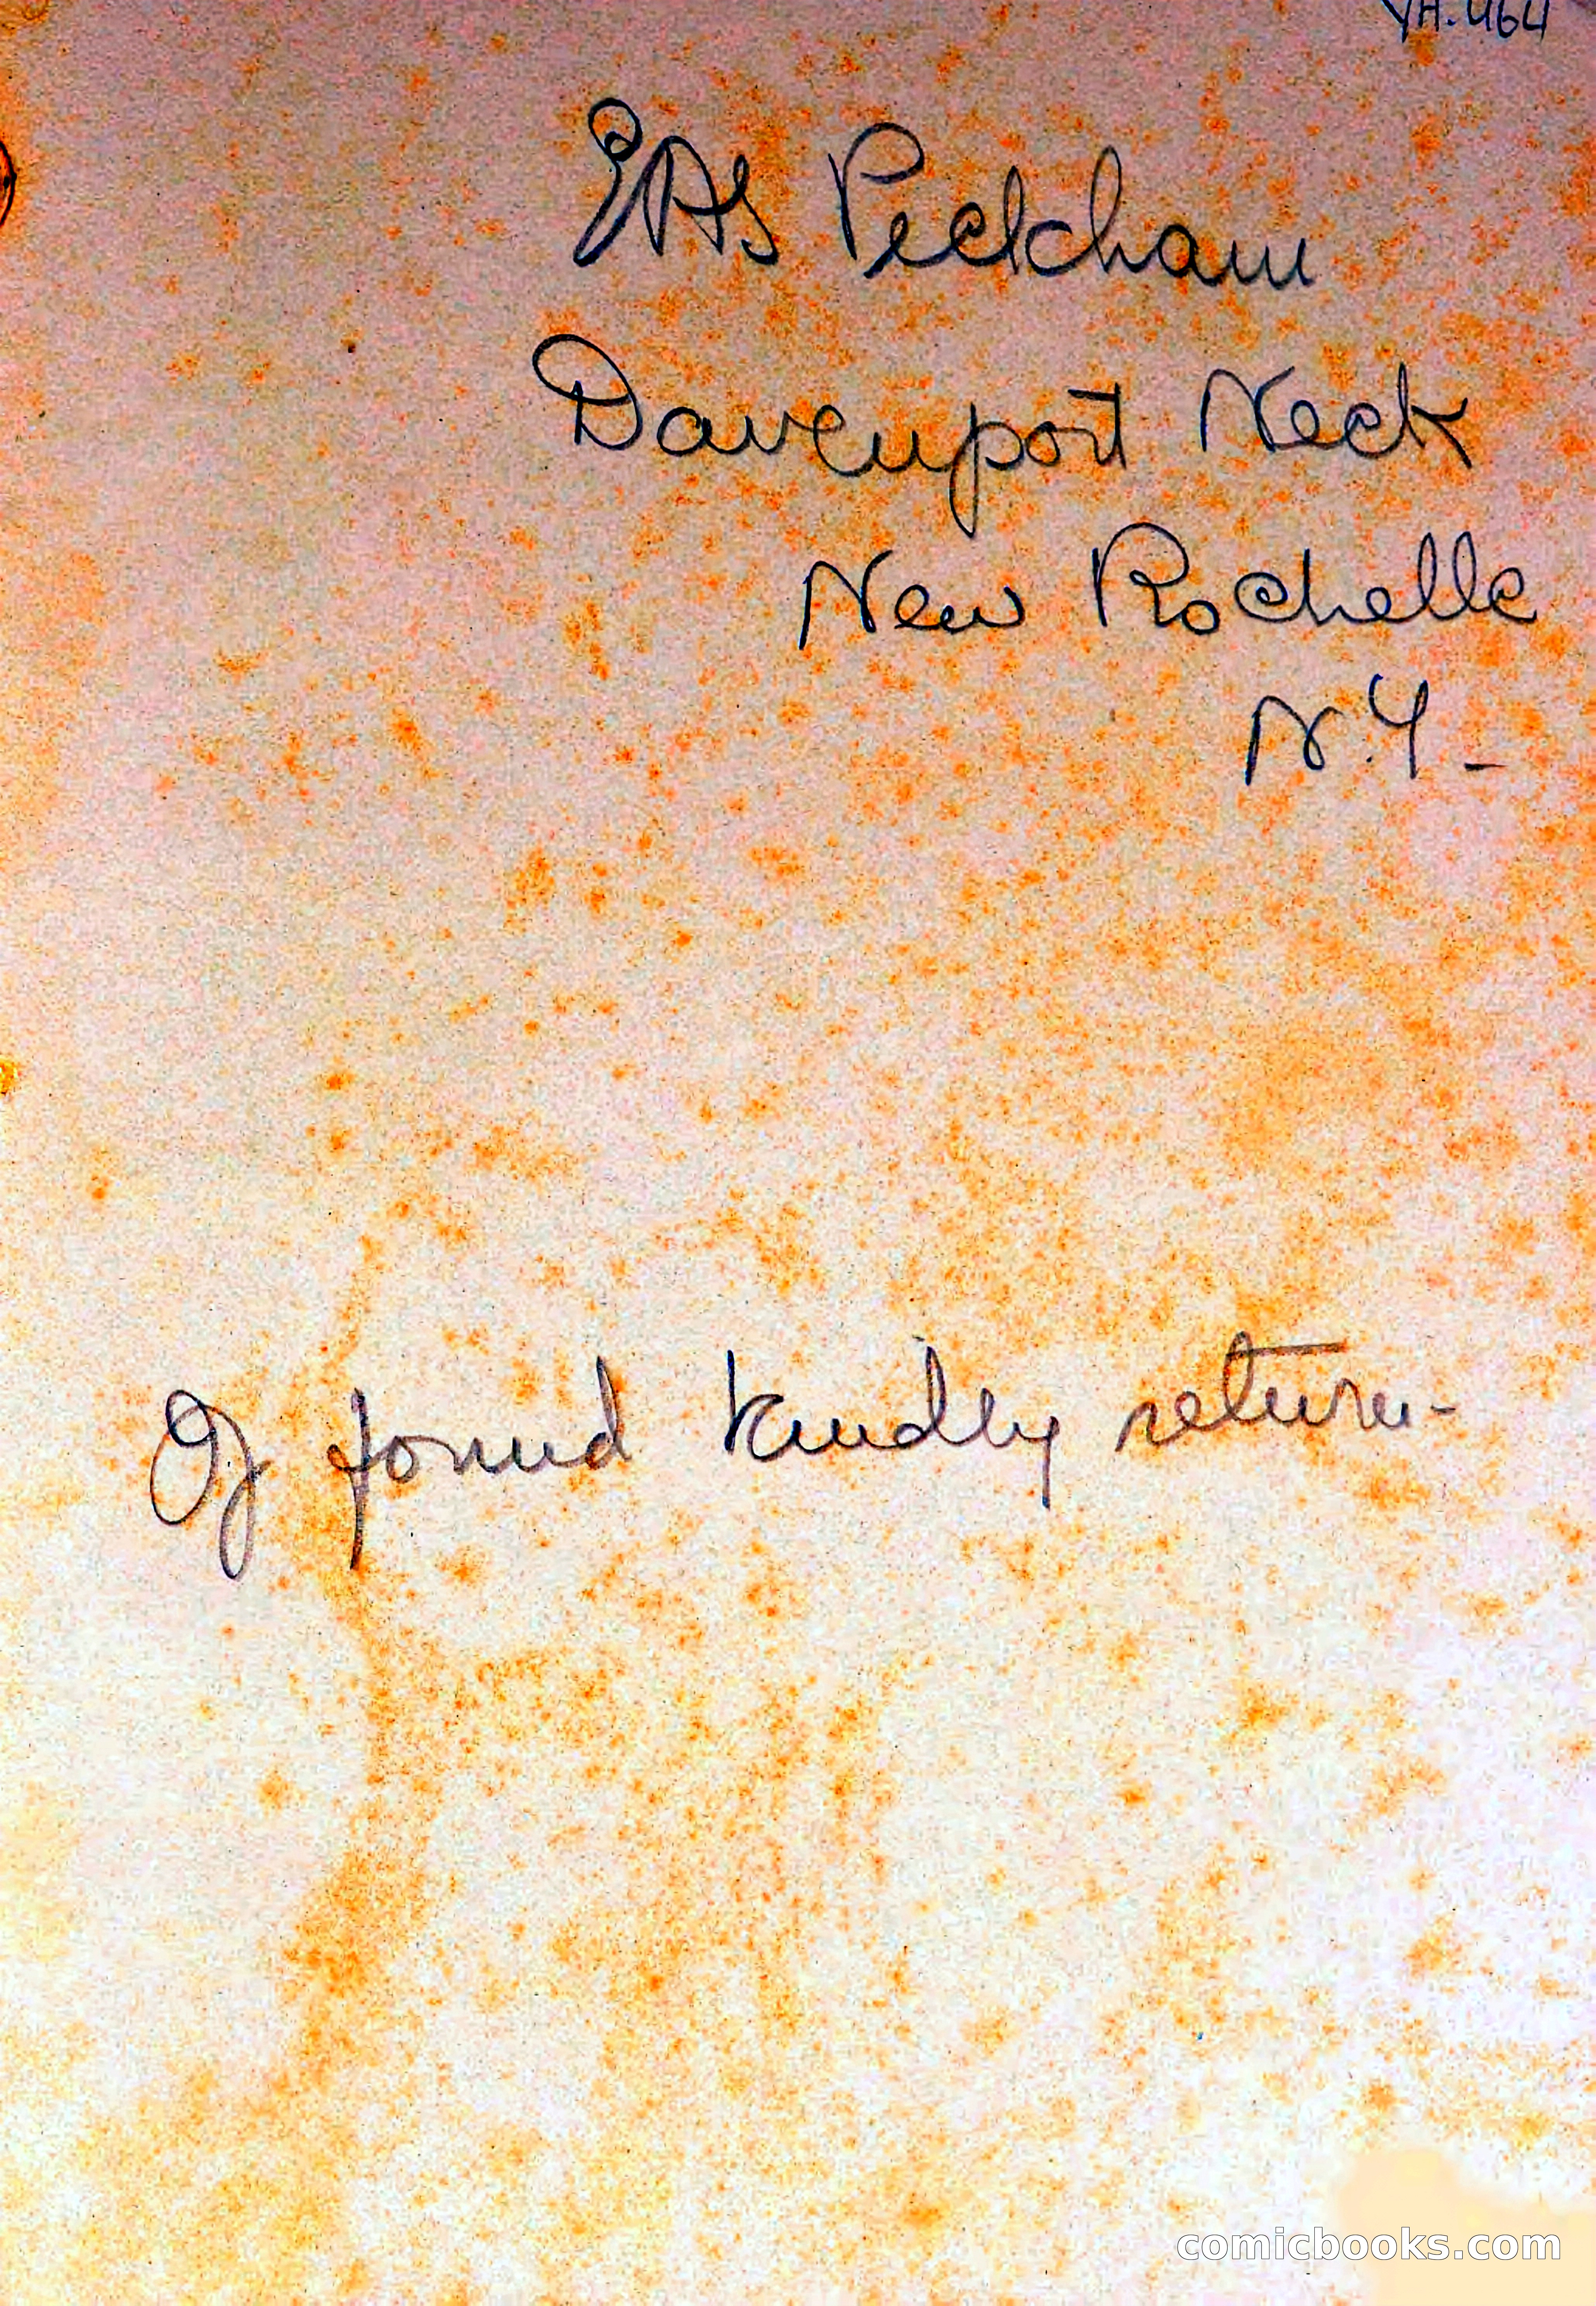 EAS Peckham
Davenport Neck
New Rochelle
N.Y -
If found kindly return-
comicbooks.com